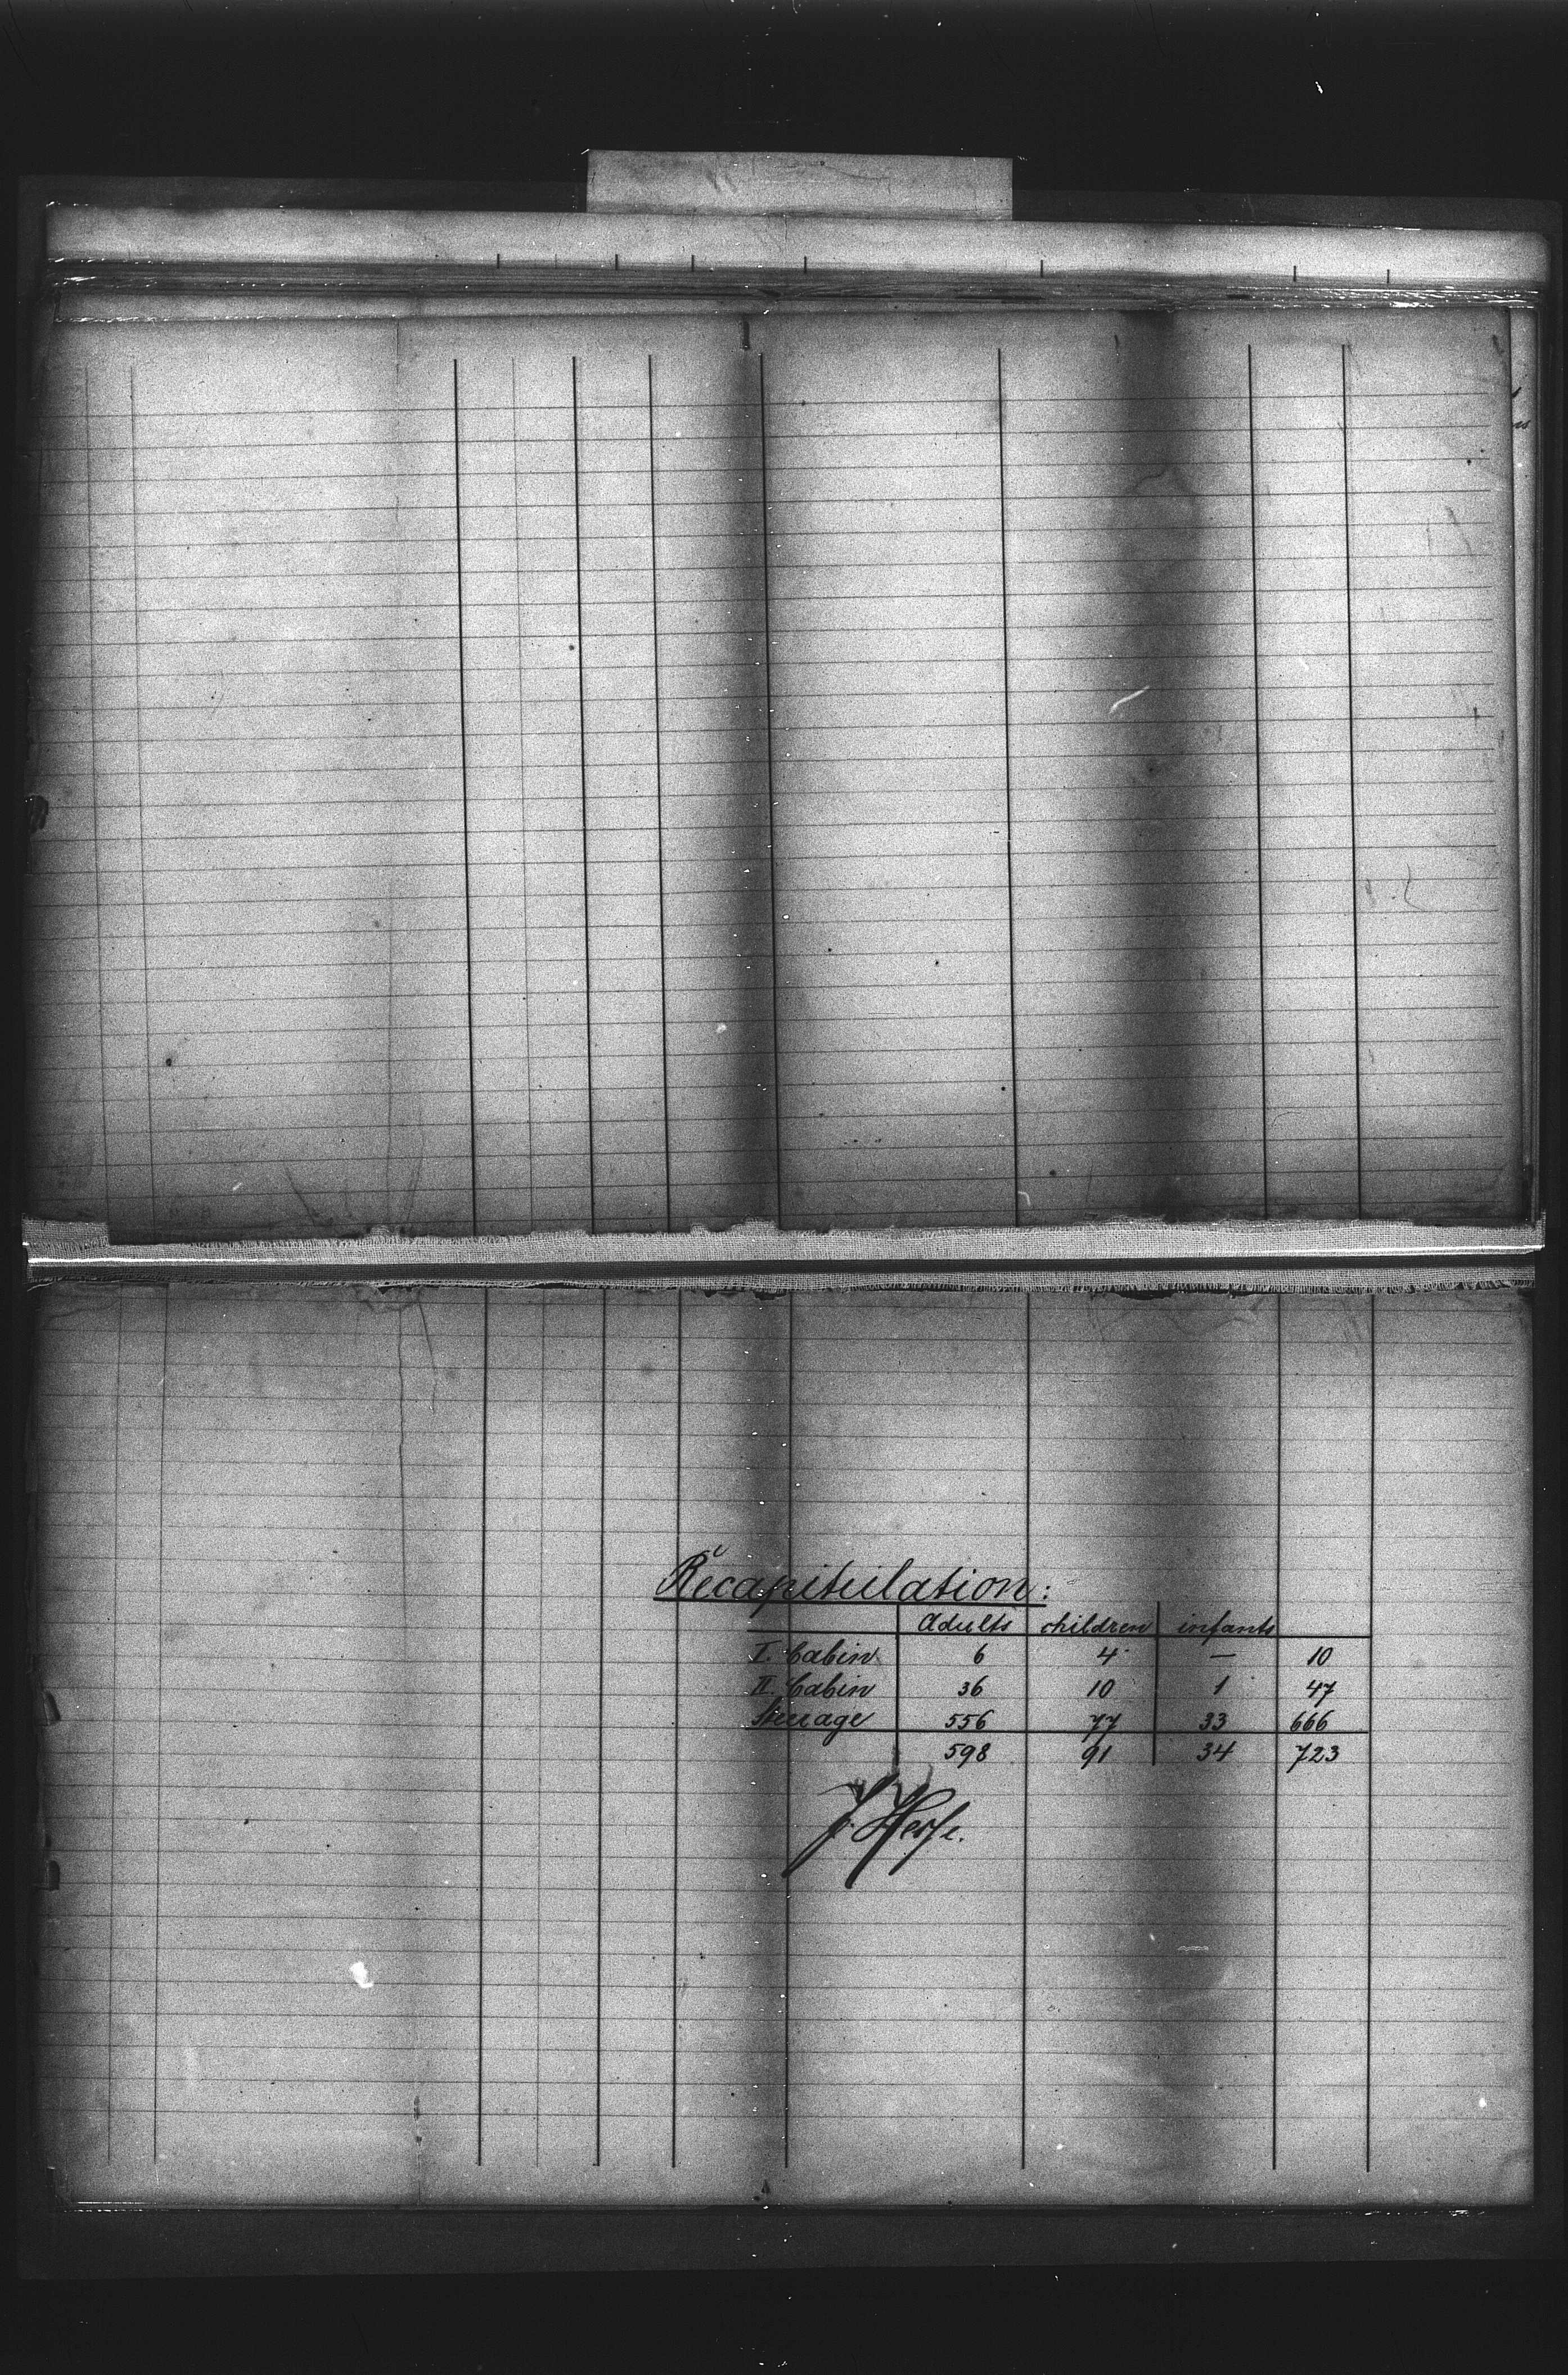 Recapitulation:
Adults children infants
I. Cabin 6 4 — 10
II. Cabin 36 10 1 47
Steerage 556 77 33 666
598 91 34 723